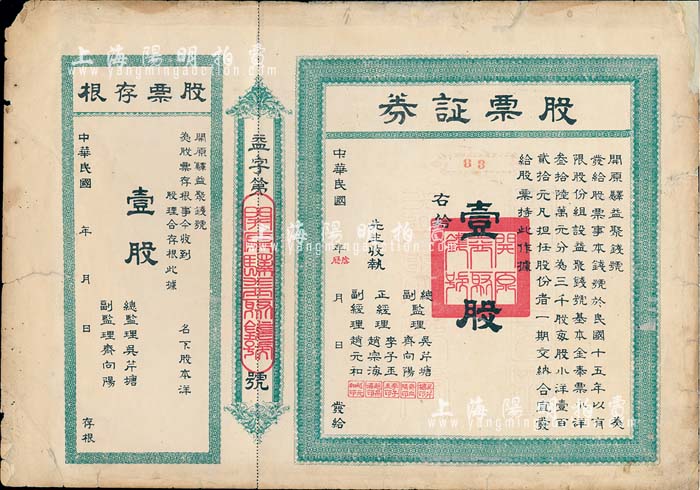 股票証券
開原驛益聚錢號 為
發給股票事本錢號於民國十五年以有
限股份組設益聚錢號基本金奉票洋
叁拾陸萬元分為三千股每股小洋壹百
貳拾元凡担任股份者一期交納合同發
給股票持此作據
88
右給
壹股
先生收執
總監理 吳芹塘
副監理 齊向陽
正經理 李子玉
趙宗海
副經理 趙元和
中華民國 年 月 日 發給
開原益聚錢號
益字第 號
股票存根
開原驛益聚錢號
為股票存根事今收到
名下股本洋
壹股
股理合存根此據
總監理吳芹塘
副監理齊向陽
中華民國 年 月 日 存根
上海陽明拍賣
www.yangmingauction.com
上海陽明拍賣
www.yangmingauction.com